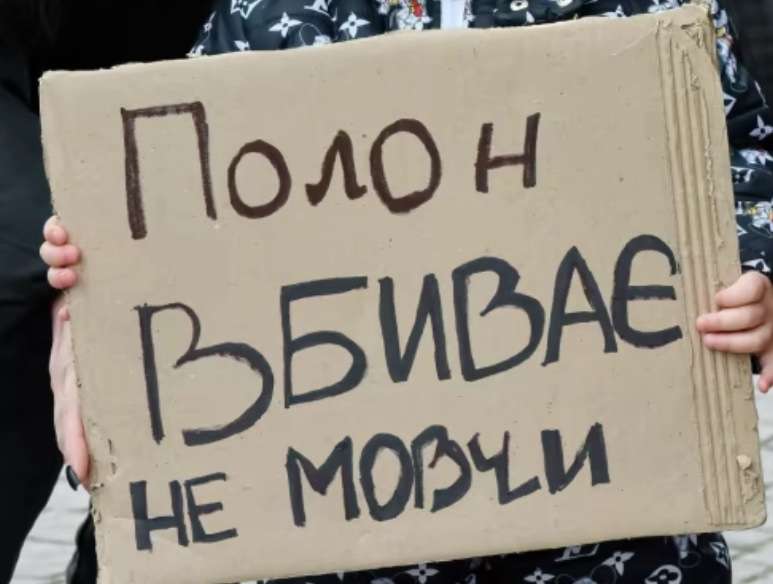 Полон
ВБИВАЄ
НЕ МОВЧИ